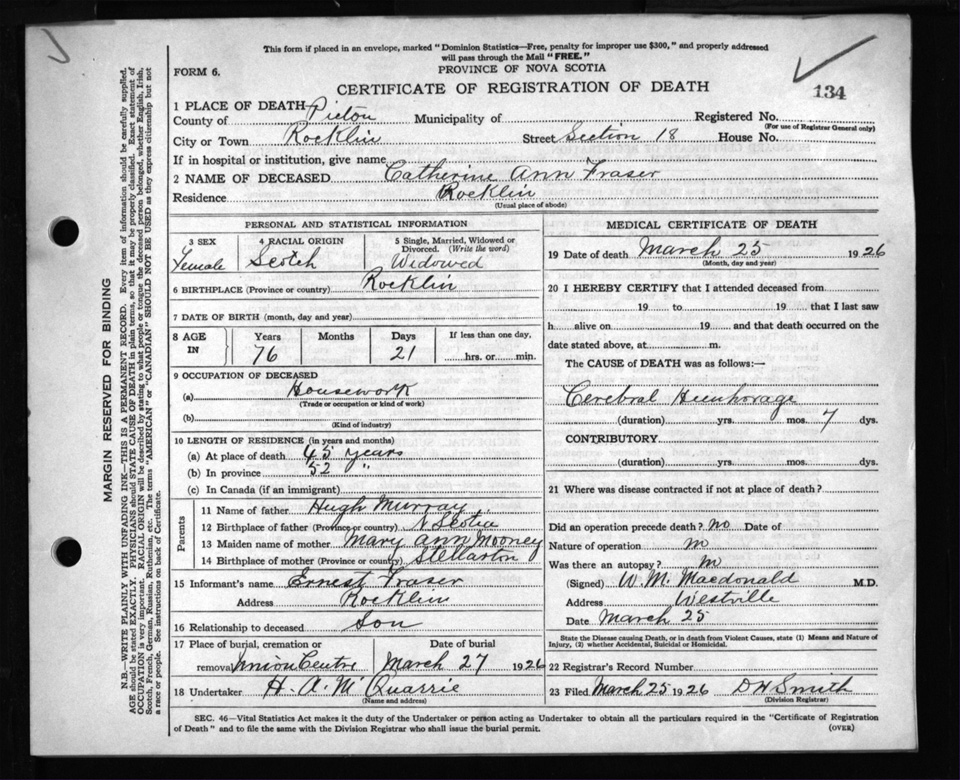 This form if placed in an envelope, marked "Dominion Statistics—Free, penalty for improper use $300," and properly addressed
will pass through the Mail "FREE."
FORM 6.
PROVINCE OF NOVA SCOTIA
CERTIFICATE OF REGISTRATION OF DEATH
134
1 PLACE OF DEATH
County of Pictou Municipality of Registered No.
(For use of Registrar General only)
City or Town Rocklin Street Section 18 House No.
If in hospital or institution, give name
2 NAME OF DECEASED Catherine Ann Fraser
Residence Rocklin
(Usual place of abode)
PERSONAL AND STATISTICAL INFORMATION
3 SEX Female
4 RACIAL ORIGIN Scotch
5 Single, Married, Widowed or
Divorced. (Write the word)
Widowed
6 BIRTHPLACE (Province or country) Rocklin
7 DATE OF BIRTH (month, day and year)
8 AGE IN Years 76 Months Days 21 If less than one day, hrs. or min.
9 OCCUPATION OF DECEASED
(a) Housework
(Trade or occupation or kind of work)
(b)
(Kind of industry)
10 LENGTH OF RESIDENCE (in years and months)
(a) At place of death 45 years
(b) In province 52 "
(c) In Canada (if an immigrant)
Parents
11 Name of father Hugh Murray
12 Birthplace of father (Province or country) N Scotia
13 Maiden name of mother Mary Ann Mooney
14 Birthplace of mother (Province or country) Stellarton
15 Informant's name Ernest Fraser
Address Rocklin
16 Relationship to deceased Son
17 Place of burial, cremation or Date of burial
removal Union Centre March 27 1926
18 Undertaker H. A. McQuarrie
(Name and address)
MEDICAL CERTIFICATE OF DEATH
19 Date of death March 25 1926
(Month, day and year)
20 I HEREBY CERTIFY that I attended deceased from
19 to 19 that I last saw
h alive on 19 and that death occurred on the
date stated above, at m.
The CAUSE of DEATH was as follows:—
Cerebral Hemhorage
(duration) yrs. mos. 7 dys.
CONTRIBUTORY
(duration) yrs. mos. dys.
21 Where was disease contracted if not at place of death?
Did an operation precede death? no Date of
Nature of operation no
Was there an autopsy? no
(Signed) W. M. Macdonald M.D.
Address Westville
Date March 25
State the Disease causing Death, or in death from Violent Causes, state (1) Means and Nature of
Injury, (2) whether Accidental, Suicidal or Homicidal.
22 Registrar's Record Number
23 Filed March 25 1926 D H Smith
(Division Registrar)
SEC. 46—Vital Statistics Act makes it the duty of the Undertaker or person acting as Undertaker to obtain all the particulars required in the "Certificate of Registration
of Death" and to file the same with the Division Registrar who shall issue the burial permit. (OVER)
MARGIN RESERVED FOR BINDING
N.B.—WRITE PLAINLY WITH UNFADING INK—THIS IS A PERMANENT RECORD. Every item of information should be carefully supplied.
AGE should be stated EXACTLY. PHYSICIANS should STATE CAUSE OF DEATH in plain terms, so that it may be properly classified. Exact statement of
OCCUPATION is very important. RACIAL ORIGIN will be described by stating to what people or tongue the deceased person belonged, whether English, Irish,
Scotch, French, German, Russian, Ruthenian, etc. The terms "AMERICAN" or "CANADIAN" SHOULD NOT BE USED as they express citizenship but not
a race or people. See instructions on back of Certificate.